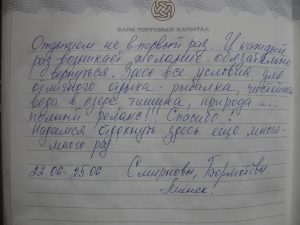 БАНК ТОРГОВЫЙ КАПИТАЛ
Отдыхаем не в первый раз. И каждый
раз возникает желание обязательно
вернуться. Здесь все условия для
отличного отдыха: рыбалка, чистейшая
вода в озере, тишина, природа...
полный релакс!!! Спасибо!
Надеемся отдохнуть здесь еще много-
много раз
22.06-25.06 Смирновы,
Минск.